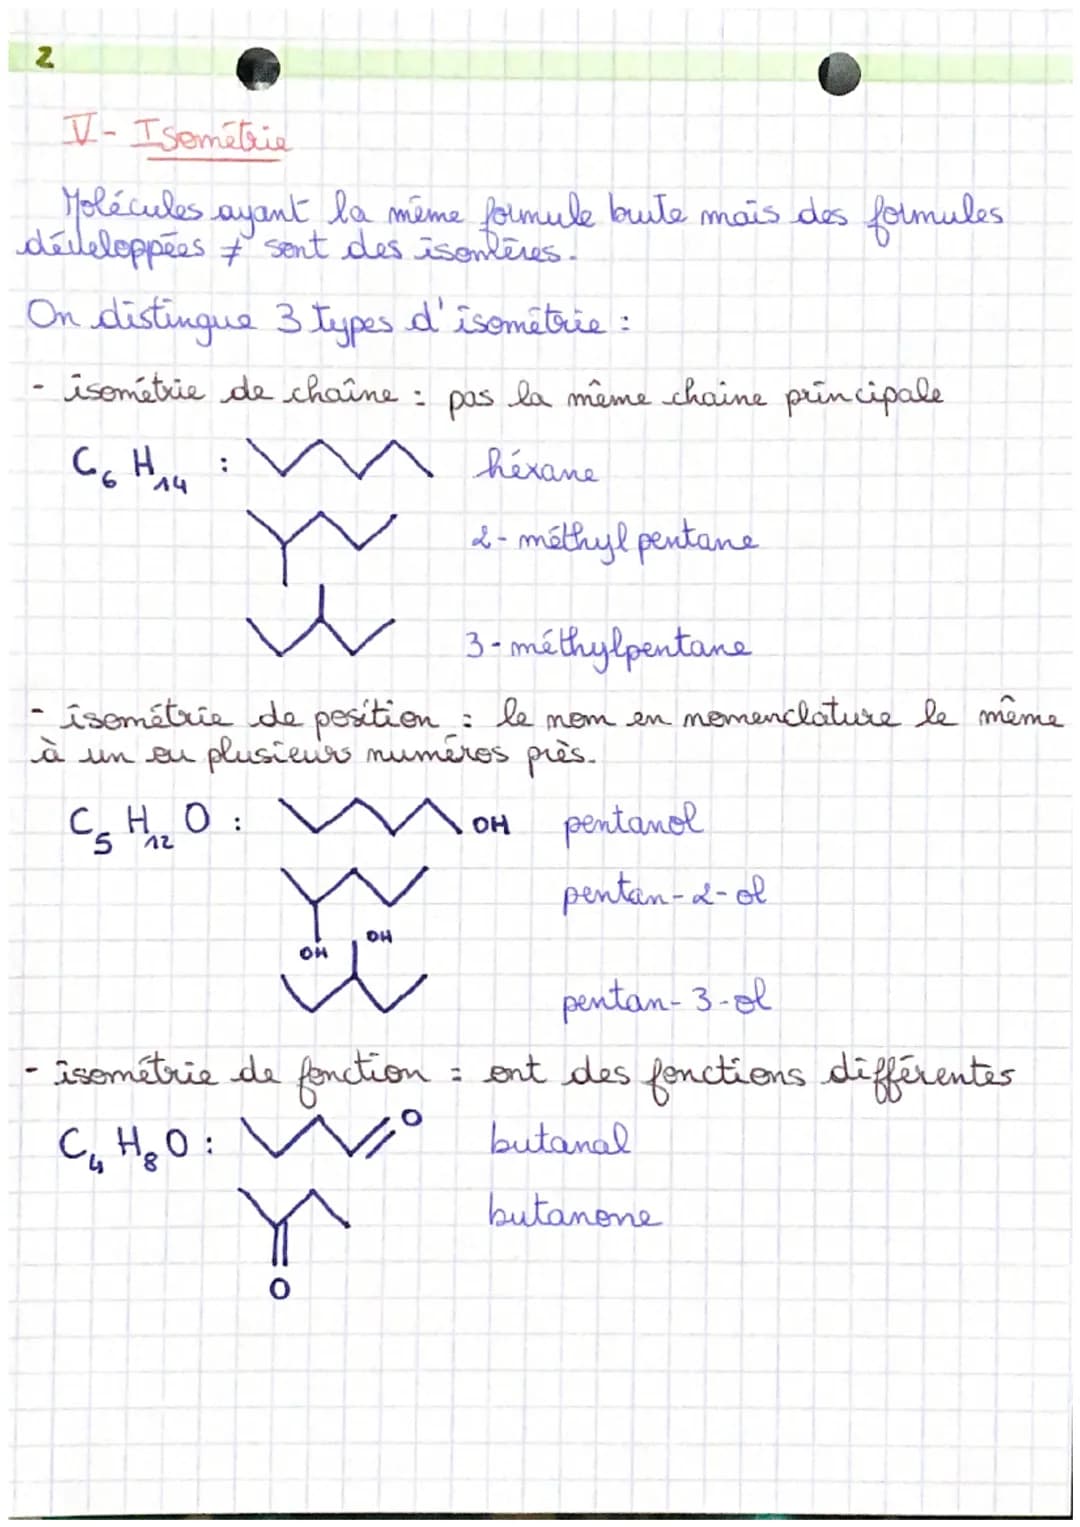 2
V - Isométrie
Molécules ayant la même formule brute mais des formules
développées ≠ sont des isomères.
On distingue 3 types d'isométrie :
- isométrie de chaîne : pas la même chaine principale
C₆ H₁₄ : héxane
2-méthylpentane
3-méthylpentane
- isométrie de position : le nom en nomenclature le même
à un ou plusieurs numéros près.
C₅ H₁₂ O : OH pentanol
pentan-2-ol
OH
OH
pentan-3-ol
- isométrie de fonction = ont des fonctions différentes
C₄ H₈ O : O butanal
butanone
O